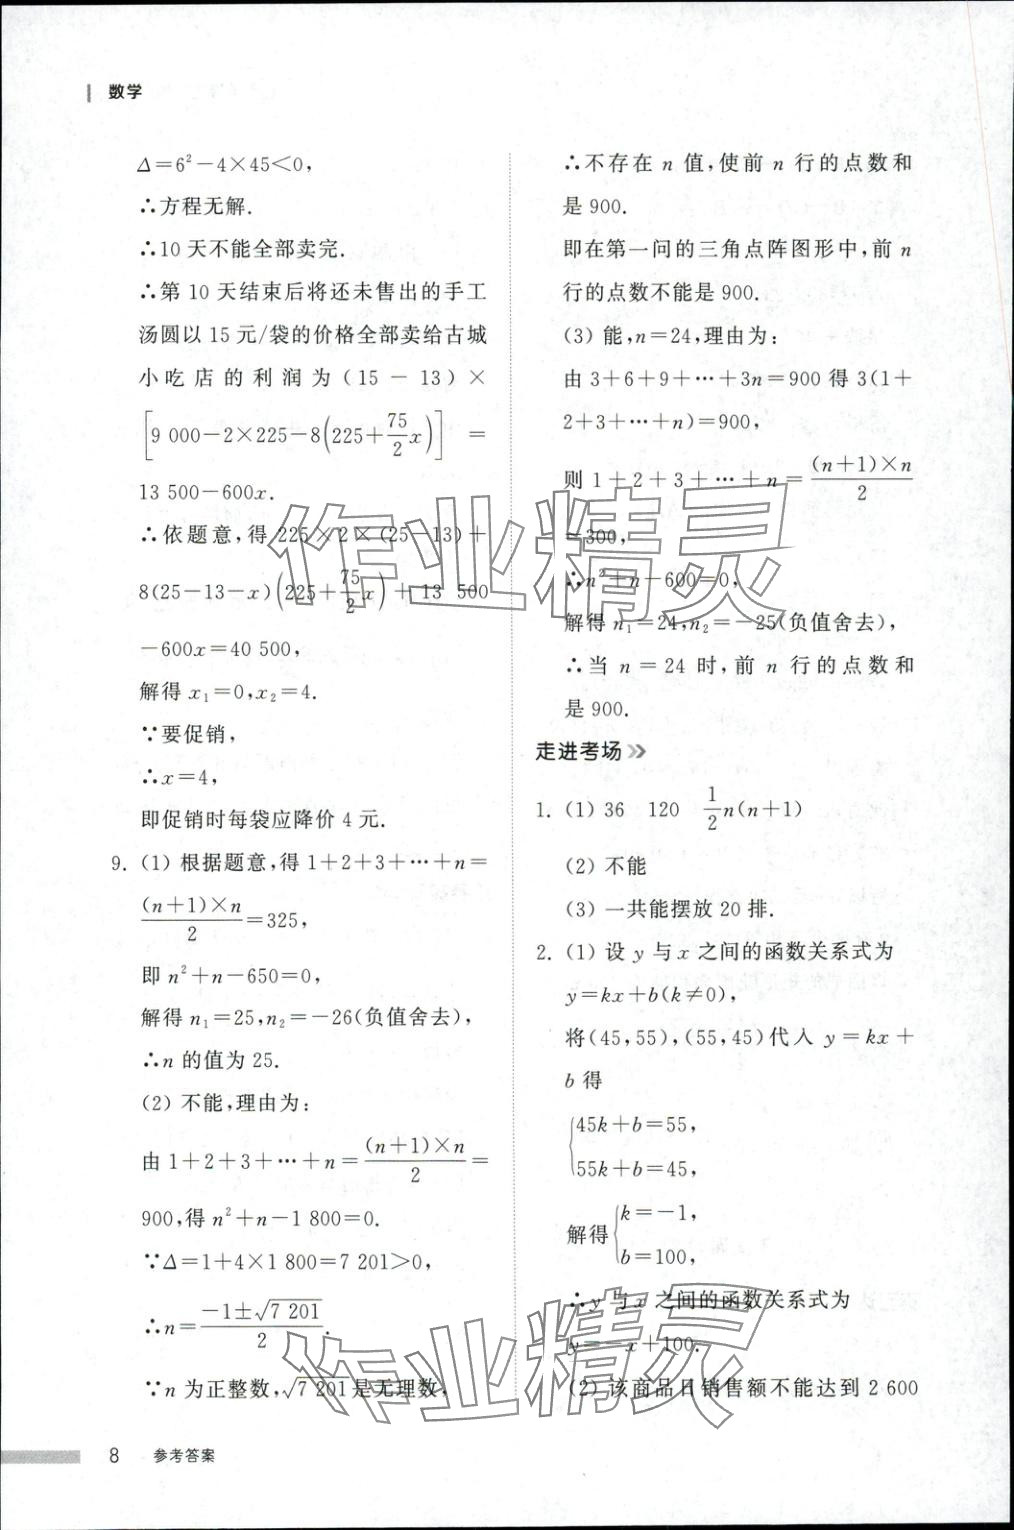 数学
Δ=6²-4×45<0,
∴方程无解.
∴10 天不能全部卖完.
∴第 10 天结束后将还未售出的手工
汤圆以 15 元/袋的价格全部卖给古城
小吃店的利润为(15-13)×
[9 000-2×225-8(225+75/2x)]=
13 500-600x.
∴依题意,得 225×2×(25-13)+
8(25-13-x)(225+75/2x)+13 500
-600x=40 500,
解得 x₁=0,x₂=4.
∵要促销,
∴x=4,
即促销时每袋应降价 4 元.
9. (1) 根据题意,得 1+2+3+…+n=
(n+1)×n/2=325,
即 n²+n-650=0,
解得 n₁=25,n₂=-26(负值舍去),
∴n 的值为 25.
(2) 不能,理由为:
由 1+2+3+…+n=(n+1)×n/2=
900,得 n²+n-1 800=0.
∵Δ=1+4×1 800=7 201>0,
∴n=(-1±√7 201)/2.
∵n 为正整数,√7 201是无理数,
∴不存在 n 值,使前 n 行的点数和
是 900.
即在第一问的三角点阵图形中,前 n
行的点数不能是 900.
(3) 能,n=24,理由为:
由 3+6+9+…+3n=900 得 3(1+
2+3+…+n)=900,
则 1+2+3+…+n=(n+1)×n/2
=300,
∴n²+n-600=0,
解得 n₁=24,n₂=-25(负值舍去),
∴当 n=24 时,前 n 行的点数和
是 900.
走进考场
1. (1) 36 120 1/2n(n+1)
(2) 不能
(3) 一共能摆放 20 排.
2. (1) 设 y 与 x 之间的函数关系式为
y=kx+b(k≠0),
将(45,55),(55,45)代入 y=kx+
b 得
{45k+b=55,
55k+b=45,
解得{k=-1,
b=100,
∴y 与 x 之间的函数关系式为
y=-x+100.
(2) 该商品日销售额不能达到 2 600
8 参考答案
作业精灵
作业精灵